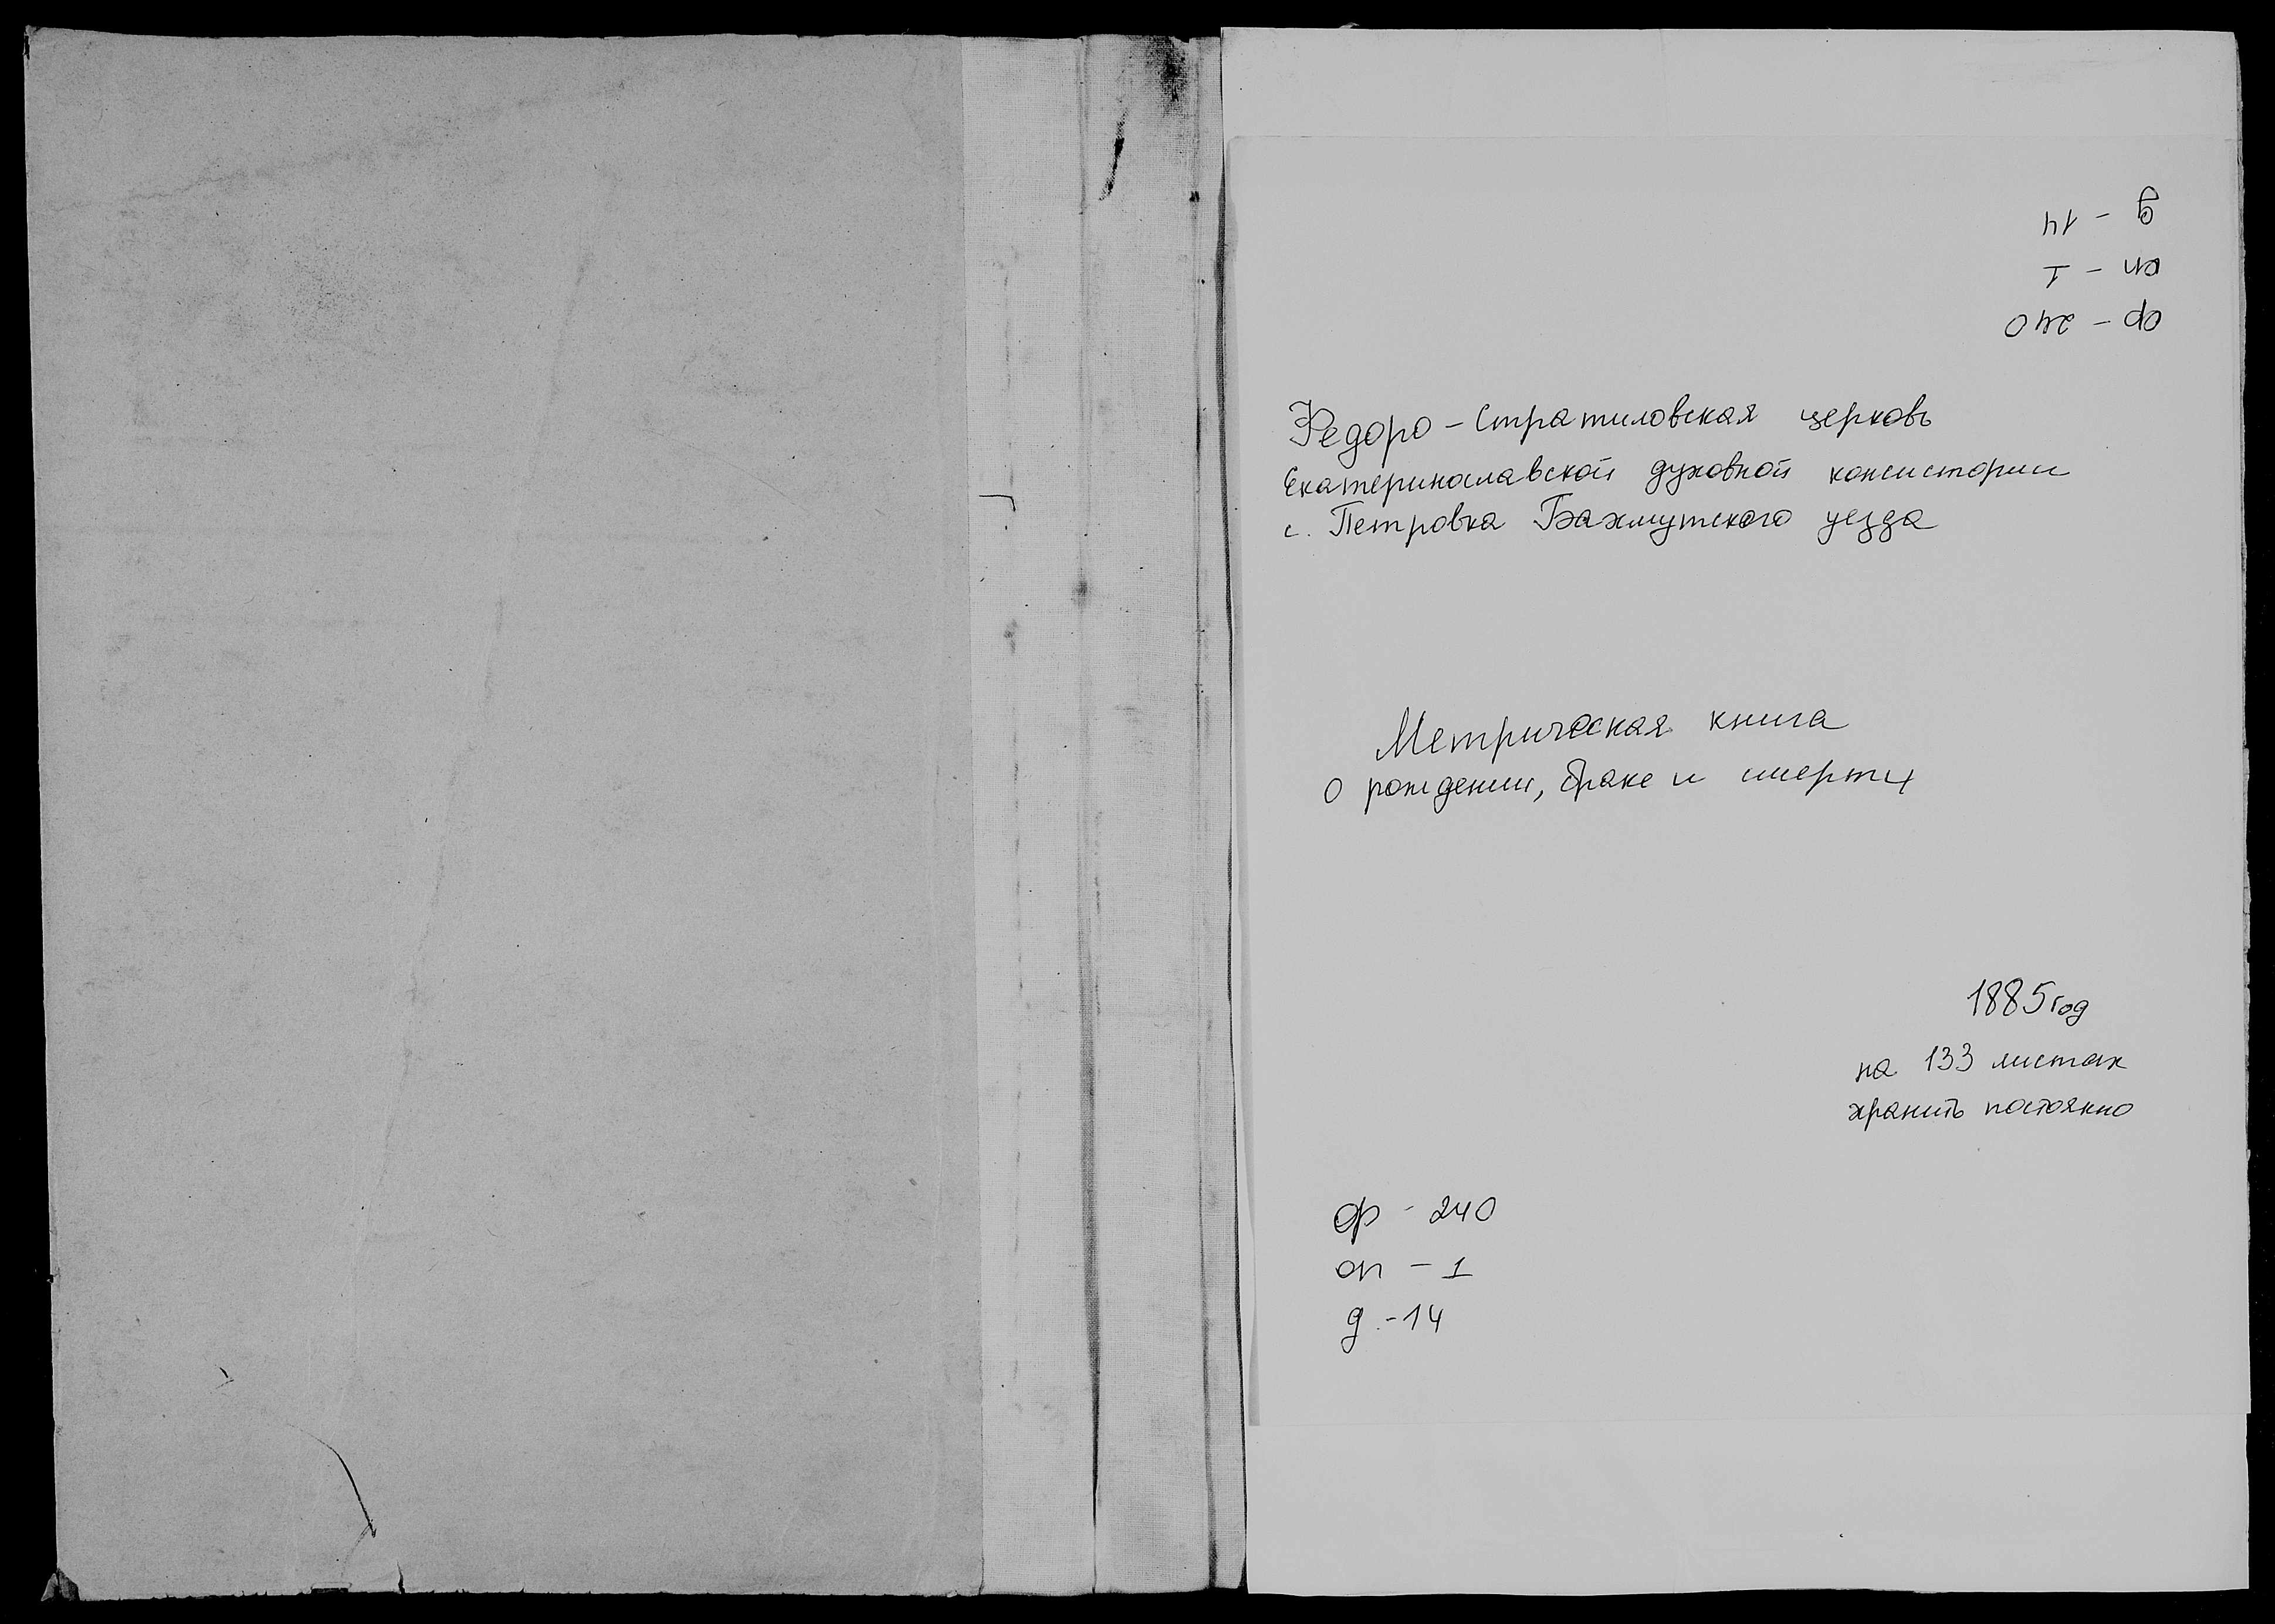 д - 14
оп - 1
ф - 240
Федоро - Стратиловская церковь
Екатеринославской духовной консистории
с. Петровка Бахмутского уезда
Метрическая книга
о рождении, браке и смерти
1885 год
на 133 листах
хранить постоянно
ф - 240
оп - 1
д - 14